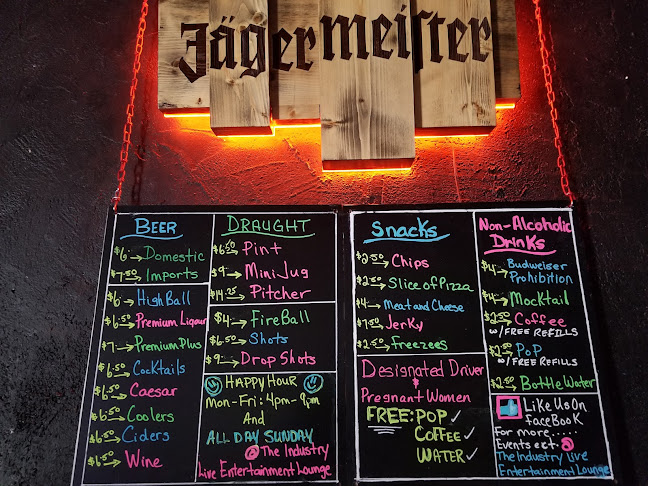 Jägermeister
BEER
$6 → Domestic
$7.50 → Imports
$6 → HighBall
$6.50 → Premium Liquor
$7 → Premium Plus
$6.50 → Cocktails
$6.50 → Caesar
$6.50 → Coolers
$6.50 → Ciders
$6.50 → Wine
DRAUGHT
$6.50 → Pint
$9 → Mini Jug
$14.25 → Pitcher
$4 → FireBall
$6.50 → Shots
$9 → Drop Shots
HAPPY HOUR
Mon-Fri: 4pm-9pm
And
ALL DAY SUNDAY
@ The Industry
Live Entertainment Lounge
Snacks
Chips
$2.50 → Slice of Pizza
$4 → Meat and Cheese
$7.50 → Jerky
$2.50 → Freezees
Designated Driver
&
Pregnant Women
FREE: POP ✓
COFFEE ✓
WATER ✓
Non-Alcoholic
Drinks
$4 → Budweiser
Prohibition
$4 → Mocktail
$2.50 → Coffee
w/ FREE REFILLS
$2.50 → PoP
w/ FREE REFILLS
$2.50 → Bottle Water
Like Us On
faceBooK
For more......
Events ect. @
The Industry Live
Entertainment Lounge